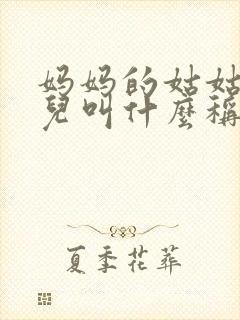 妈妈的姑姑
兒叫什麼稱
夏季花葬